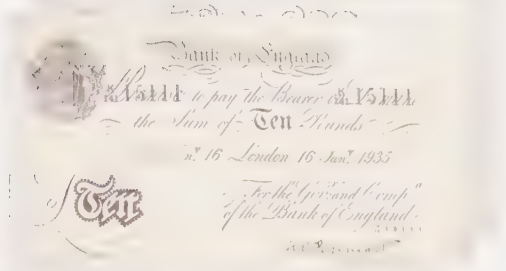 Bank of England
15111 to pay the Bearer 15111
the Sum of Ten Pounds
16 London 16 Jany 1935
For the Govr and Compa
of the Bank of England
of Ten